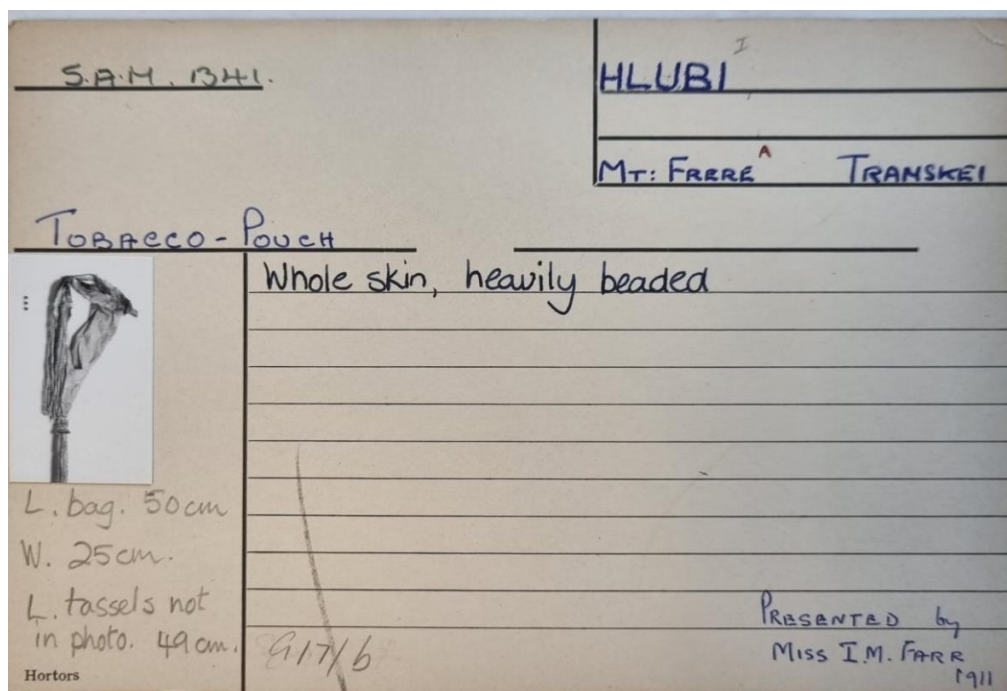 S.A.M. 1341.
I
HLUBI
A
MT: FRERE TRANSKEI
TOBACCO - POUCH
Whole skin, heavily beaded
L. bag. 50cm
W. 25cm.
L. tassels not
in photo. 49cm.
PRESENTED by
MISS I.M. FARR
1911
Hortors